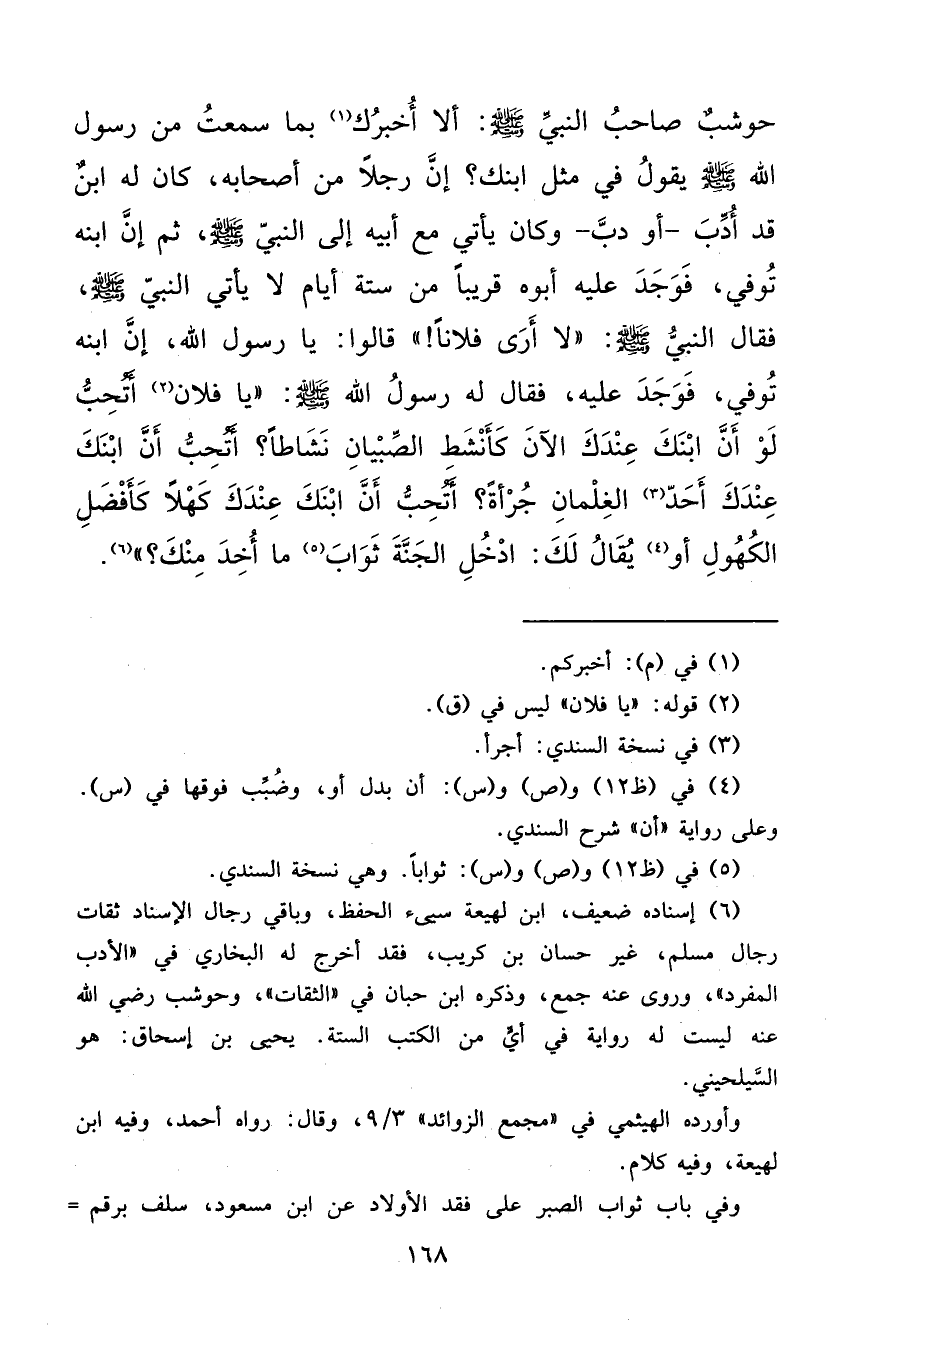 حوشبٌ صاحبُ النبيِّ ﷺ: ألا أُخبرُك(١) بما سمعتُ من رسول
الله ﷺ يقولُ في مثل ابنك؟ إنَّ رجلاً من أصحابه، كان له ابنٌ
قد أُدِّبَ -أو دبَّ- وكان يأتي مع أبيه إلى النبيّ ﷺ، ثم إنَّ ابنه
تُوفي، فَوَجَدَ عليه أبوه قريباً من ستة أيام لا يأتي النبيّ ﷺ،
فقال النبيُّ ﷺ: «لا أَرَى فلاناً!» قالوا: يا رسول الله، إنَّ ابنه
تُوفي، فَوَجَدَ عليه، فقال له رسولُ الله ﷺ: «يا فلان(٢) أَتُحِبُّ
لَوْ أَنَّ ابْنَكَ عِنْدَكَ الآنَ كَأَنْشَطِ الصِّبْيانِ نَشَاطاً؟ أَتُحِبُّ أَنَّ ابْنَكَ
عِنْدَكَ أَحَدّ(٣) الغِلْمانِ جُرْأةً؟ أَتُحِبُّ أَنَّ ابْنَكَ عِنْدَكَ كَهْلاً كَأَفْضَلِ
الكُهُولِ أو(٤) يُقَالُ لَكَ: ادْخُلِ الجَنَّةَ ثَوَابَ(٥) ما أُخِذَ مِنْكَ؟»(٦).
(١) في (م): أخبركم.
(٢) قوله: «يا فلان» ليس في (ق).
(٣) في نسخة السندي: أجرأ.
(٤) في (ظ١٢) و(ص) و(س): أن بدل أو، وضُبِّب فوقها في (س).
وعلى رواية «أن» شرح السندي.
(٥) في (ظ١٢) و(ص) و(س): ثواباً. وهي نسخة السندي.
(٦) إسناده ضعيف، ابن لهيعة سيىء الحفظ، وباقي رجال الإسناد ثقات
رجال مسلم، غير حسان بن كريب، فقد أخرج له البخاري في «الأدب
المفرد»، وروى عنه جمع، وذكره ابن حبان في «الثقات»، وحوشب رضي الله
عنه ليست له رواية في أيٍّ من الكتب الستة. يحيى بن إسحاق: هو
السَّيلحيني.
وأورده الهيثمي في «مجمع الزوائد» ٩/٣، وقال: رواه أحمد، وفيه ابن
لهيعة، وفيه كلام.
وفي باب ثواب الصبر على فقد الأولاد عن ابن مسعود، سلف برقم =
١٦٨